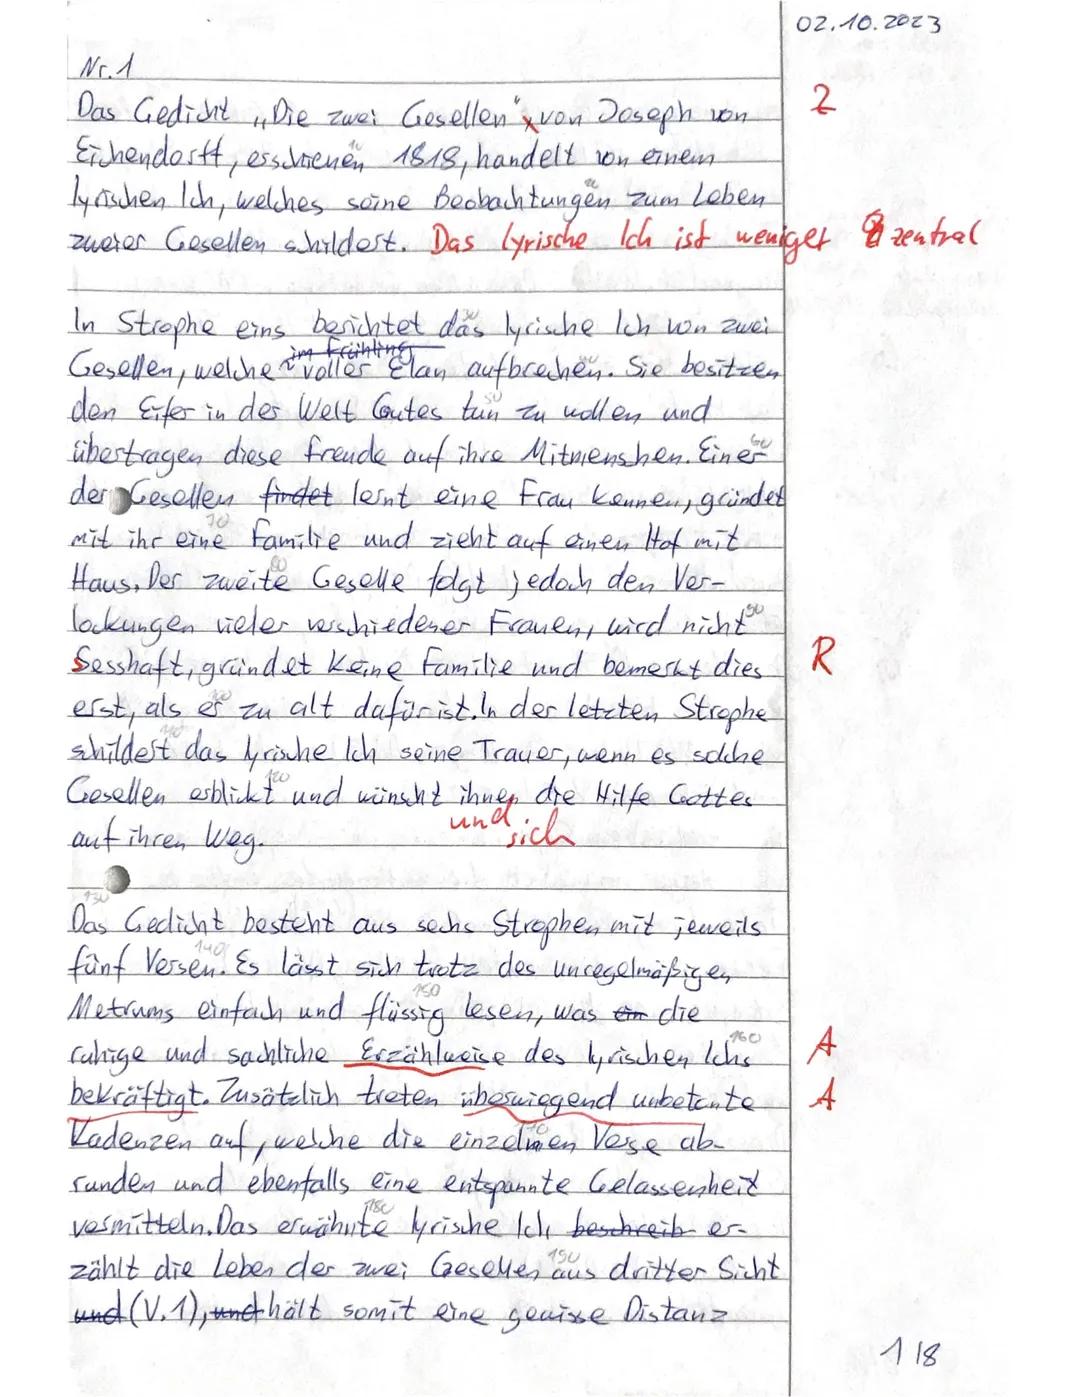 02.10.2023
Nr. 1
Das Gedicht „Die zwei Gesellen" x von Joseph von Z
Eichendorff, erschienen 1818, handelt von einem
lyrischen Ich, welches seine Beobachtungen zum Leben
zweier Gesellen schildert. Das lyrische Ich ist weniger zentral
In Strophe eins berichtet das lyrische Ich von zwei
im Frühling
Gesellen, welche voller Elan aufbrechen. Sie besitzen
den Eifer in der Welt Gutes tun zu wollen und
übertragen diese Freude auf ihre Mitmenschen. Einer
der Gesellen findet lernt eine Frau kennen, gründet
mit ihr eine Familie und zieht auf einen Hof mit
Haus. Der zweite Geselle folgt jedoch den Ver-
lockungen vieler verschiedener Frauen, wird nicht
sesshaft, gründet keine Familie und bemerkt dies R
erst, als er zu alt dafür ist. In der letzten Strophe
schildert das lyrische Ich seine Trauer, wenn es solche
Gesellen erblickt und wünscht ihnen die Hilfe Gottes
und sich
auf ihren Weg.
130
Das Gedicht besteht aus sechs Strophen mit jeweils
140
fünf Versen. Es lässt sich trotz des unregelmäßigen
150
Metrums einfach und flüssig lesen, was ein die
160
ruhige und sachliche Erzählweise des lyrischen Ichs A
bekräftigt. Zusätzlich treten überwiegend unbetonte A
170
Kadenzen auf, welche die einzelnen Verse ab-
runden und ebenfalls eine entspannte Gelassenheit
180
vermitteln. Das erwähnte lyrische Ich beschreib er-
190
zählt die Leben der zwei Gesellen aus dritter Sicht
und (V.1), und hält somit eine gewisse Distanz
118